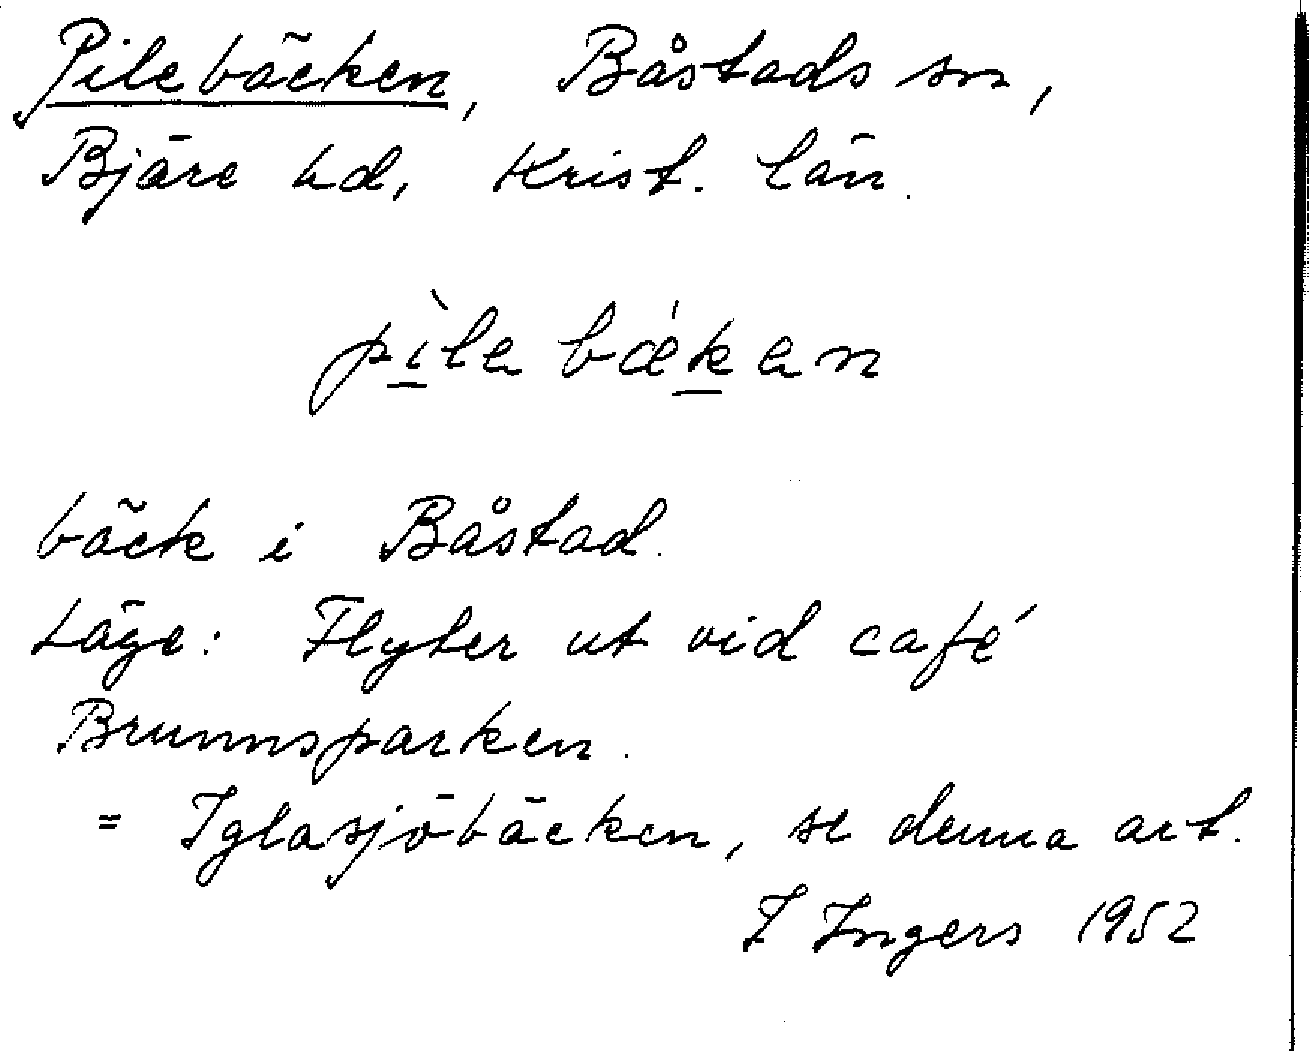 Pilebäcken, Båstads sn,
Bjäre hd, Krist. län.
pìlebǽken
bäck i Båstad.
Läge: Flyter ut vid café
Brunnsparken.
= Iglasjöbäcken, se denna art.
I Ingers 1952